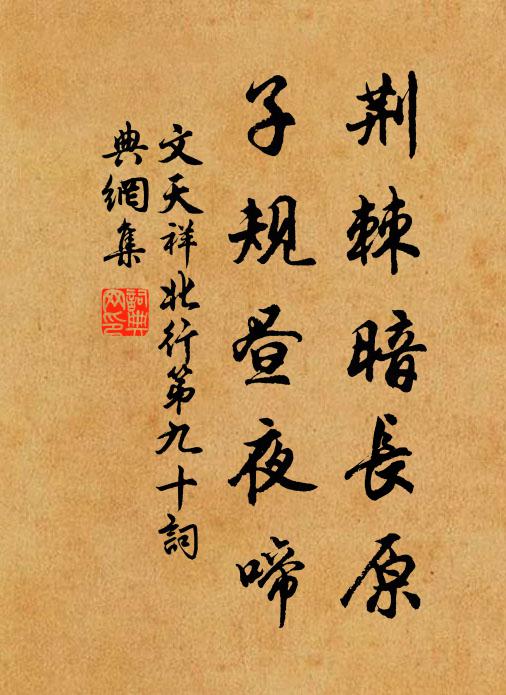 荆棘暗長原
子規昼夜啼
文天祥北行第九十詞
典網集
詞典
网印